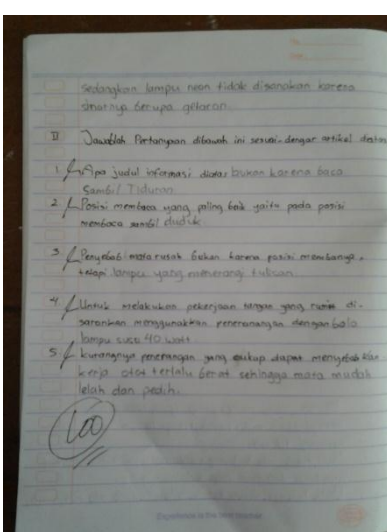 sedangkan lampu neon tidak disarankan karena
sinarnya berupa gelaran.
II Jawablah Pertanyaan dibawah ini sesuai dengan artikel diatas
1. Apa judul informasi diatas bukan karena baca
Sambil Tiduran
2. Posisi membaca yang paling baik yaitu pada posisi
membaca sambil duduk.
3 Penyebab mata rusak bukan karena posisi membacanya,
tetapi lampu yang menerangi tulisan.
4 Untuk melakukan pekerjaan tangan yang rumit di-
sarankan menggunakkan penerangangan dengan bola
lampu susu 40 watt
5 kurangnya penerangan yang cukup dapat menyebabkan
kerja otot terlalu berat sehingga mata mudah
lelah dan pedih.
100
Experience is the best teacher